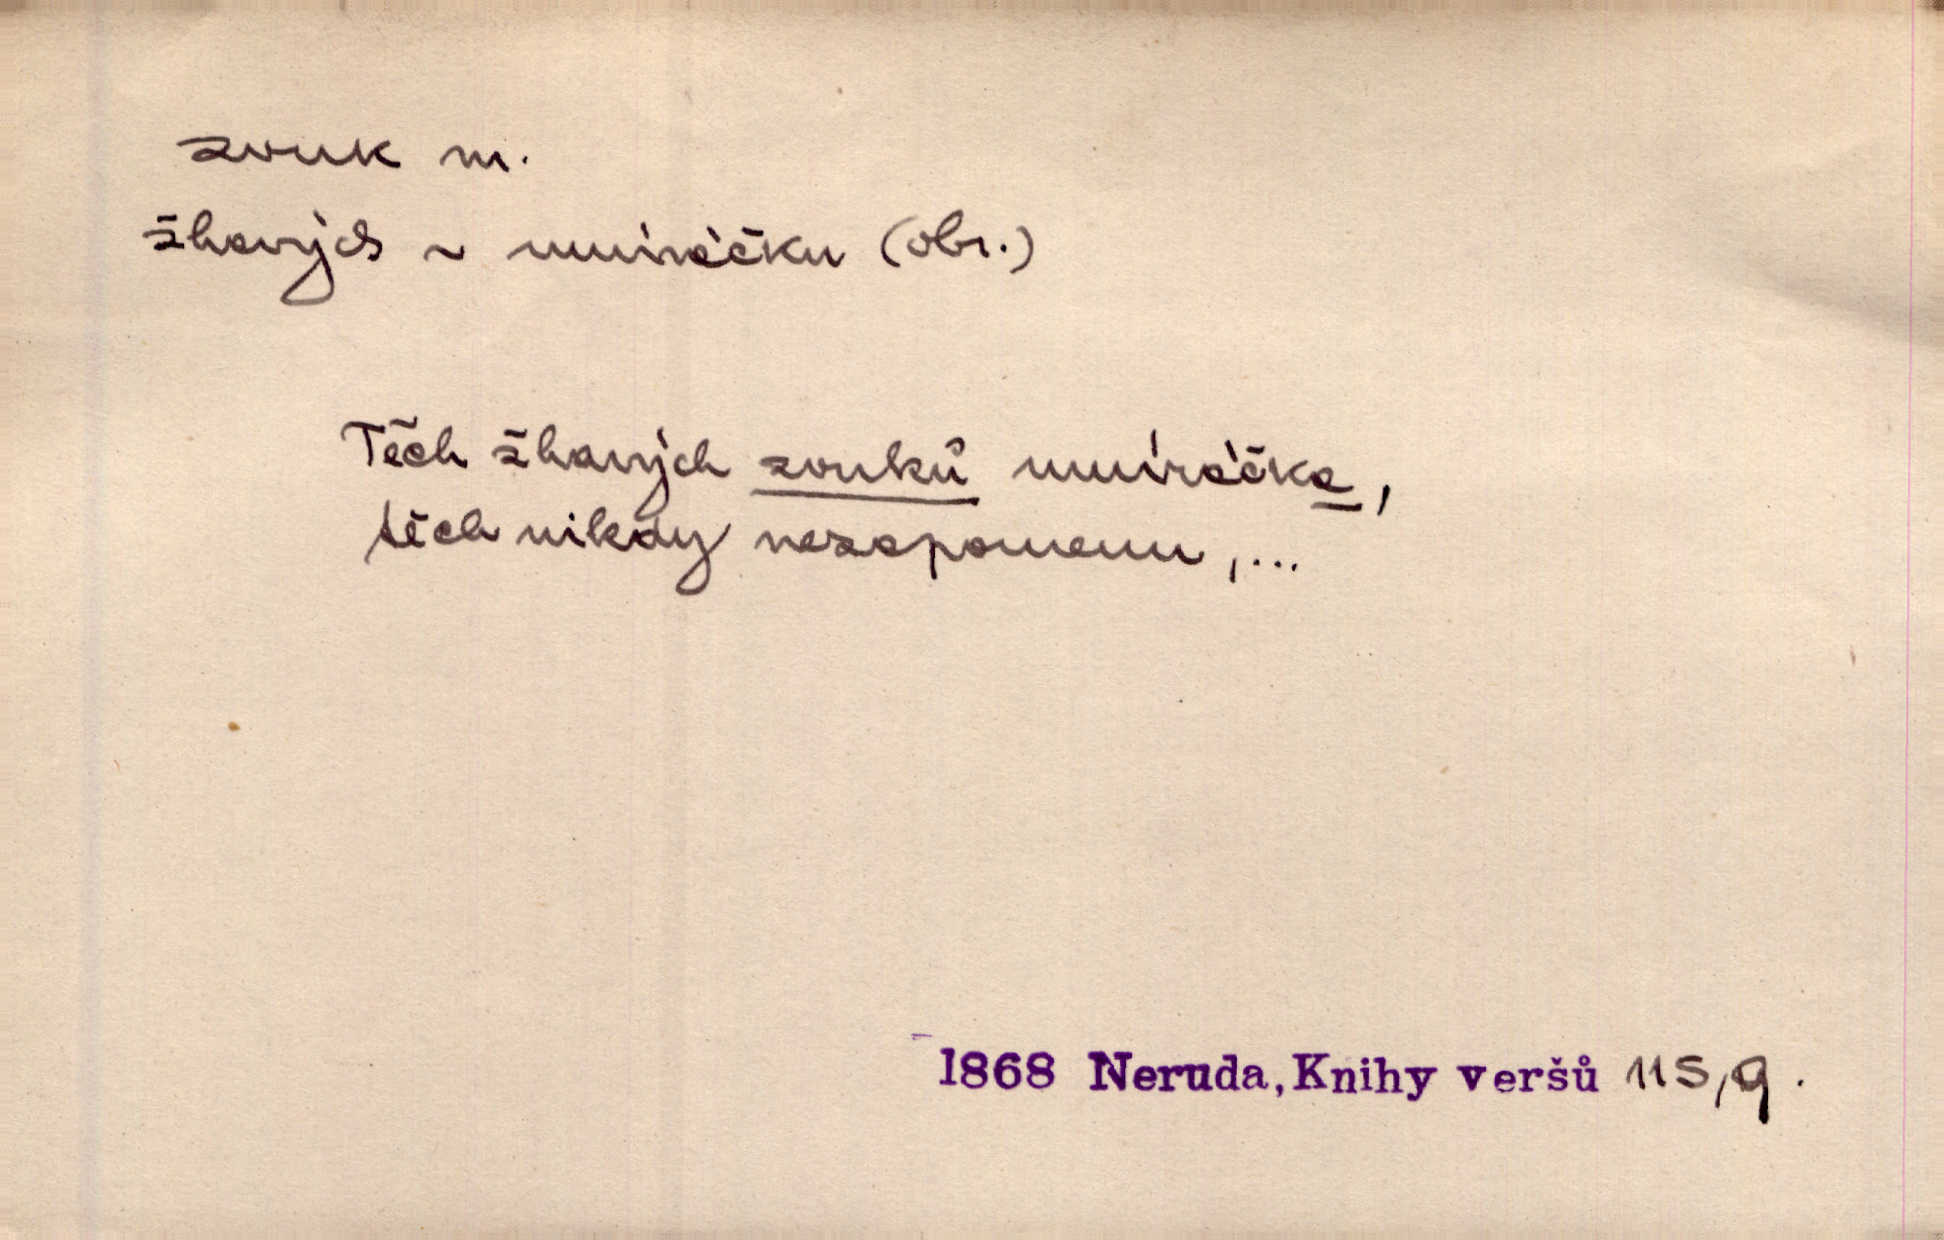 zvuk m.
žhavých ~ umíráčku (obr.)
Těch žhavých zvuků umíráčka,
těch nikdy nezapomenu,...
1868 Neruda, Knihy veršů 115,9.